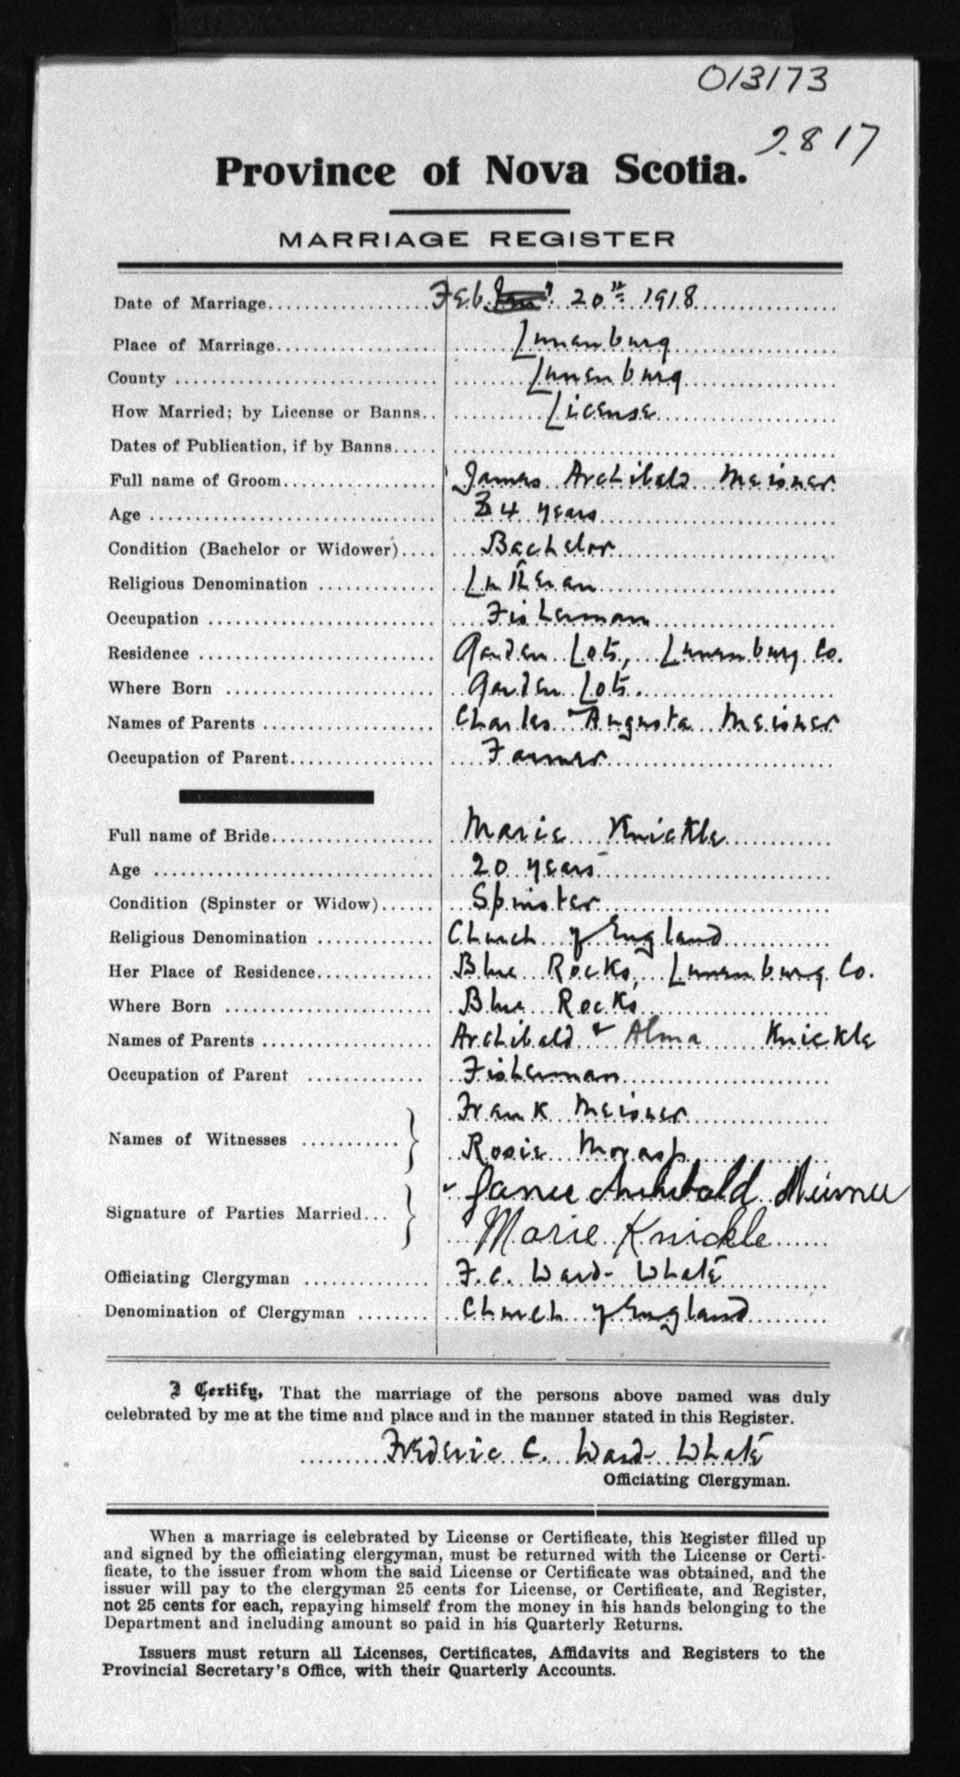 013173
2817
Province of Nova Scotia.
MARRIAGE REGISTER
Date of Marriage Feb. 20th 1918
Place of Marriage Lunenburg
County Lunenburg
How Married; by License or Banns License
Dates of Publication, if by Banns
Full name of Groom James Archibald Meisner
Age 24 years
Condition (Bachelor or Widower) Bachelor
Religious Denomination Lutheran
Occupation Fisherman
Residence Garden Lots, Lunenburg Co.
Where Born Garden Lots.
Names of Parents Charles Augusta Meisner
Occupation of Parent Farmer
Full name of Bride Marie Knickle
Age 20 years
Condition (Spinster or Widow) Spinster
Religious Denomination Church of England
Her Place of Residence Blue Rocks, Lunenburg Co.
Where Born Blue Rocks
Names of Parents Archibald & Alma Knickle
Occupation of Parent Fisherman
Frank Meisner
Names of Witnesses }
Rosie
James Archibald Meisner
Signature of Parties Married }
Marie Knickle
Officiating Clergyman F. C. Ward-Whate
Denomination of Clergyman Church of England
I Certify, That the marriage of the persons above named was duly
celebrated by me at the time and place and in the manner stated in this Register.
Frederic C. Ward-Whate
Officiating Clergyman.
When a marriage is celebrated by License or Certificate, this Register filled up
and signed by the officiating clergyman, must be returned with the License or Certi-
ficate, to the issuer from whom the said License or Certificate was obtained, and the
issuer will pay to the clergyman 25 cents for License, or Certificate, and Register,
not 25 cents for each, repaying himself from the money in his hands belonging to the
Department and including amount so paid in his Quarterly Returns.
Issuers must return all Licenses, Certificates, Affidavits and Registers to the
Provincial Secretary's Office, with their Quarterly Accounts.